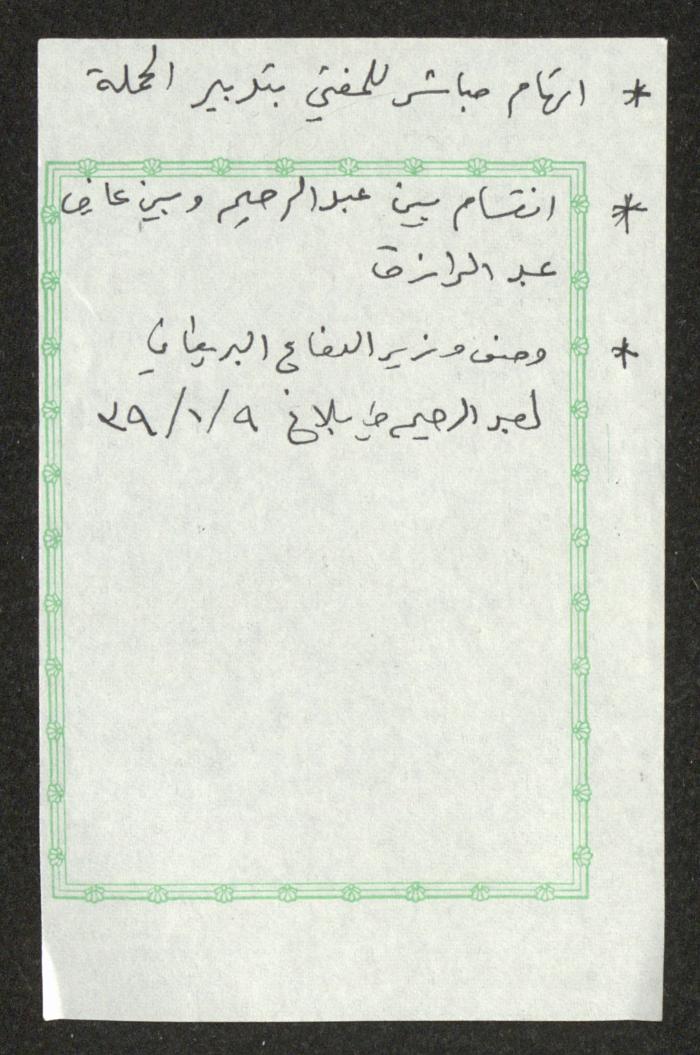 * اتهام مباشر للمفتي بتدبير الحملة
* انقسام بين عبدالرحيم وبين عارف
عبد الرازق
* وصف وزير الدفاع البريطاني
لعبد الرحيم في بلاغ ٩/١/٣٩